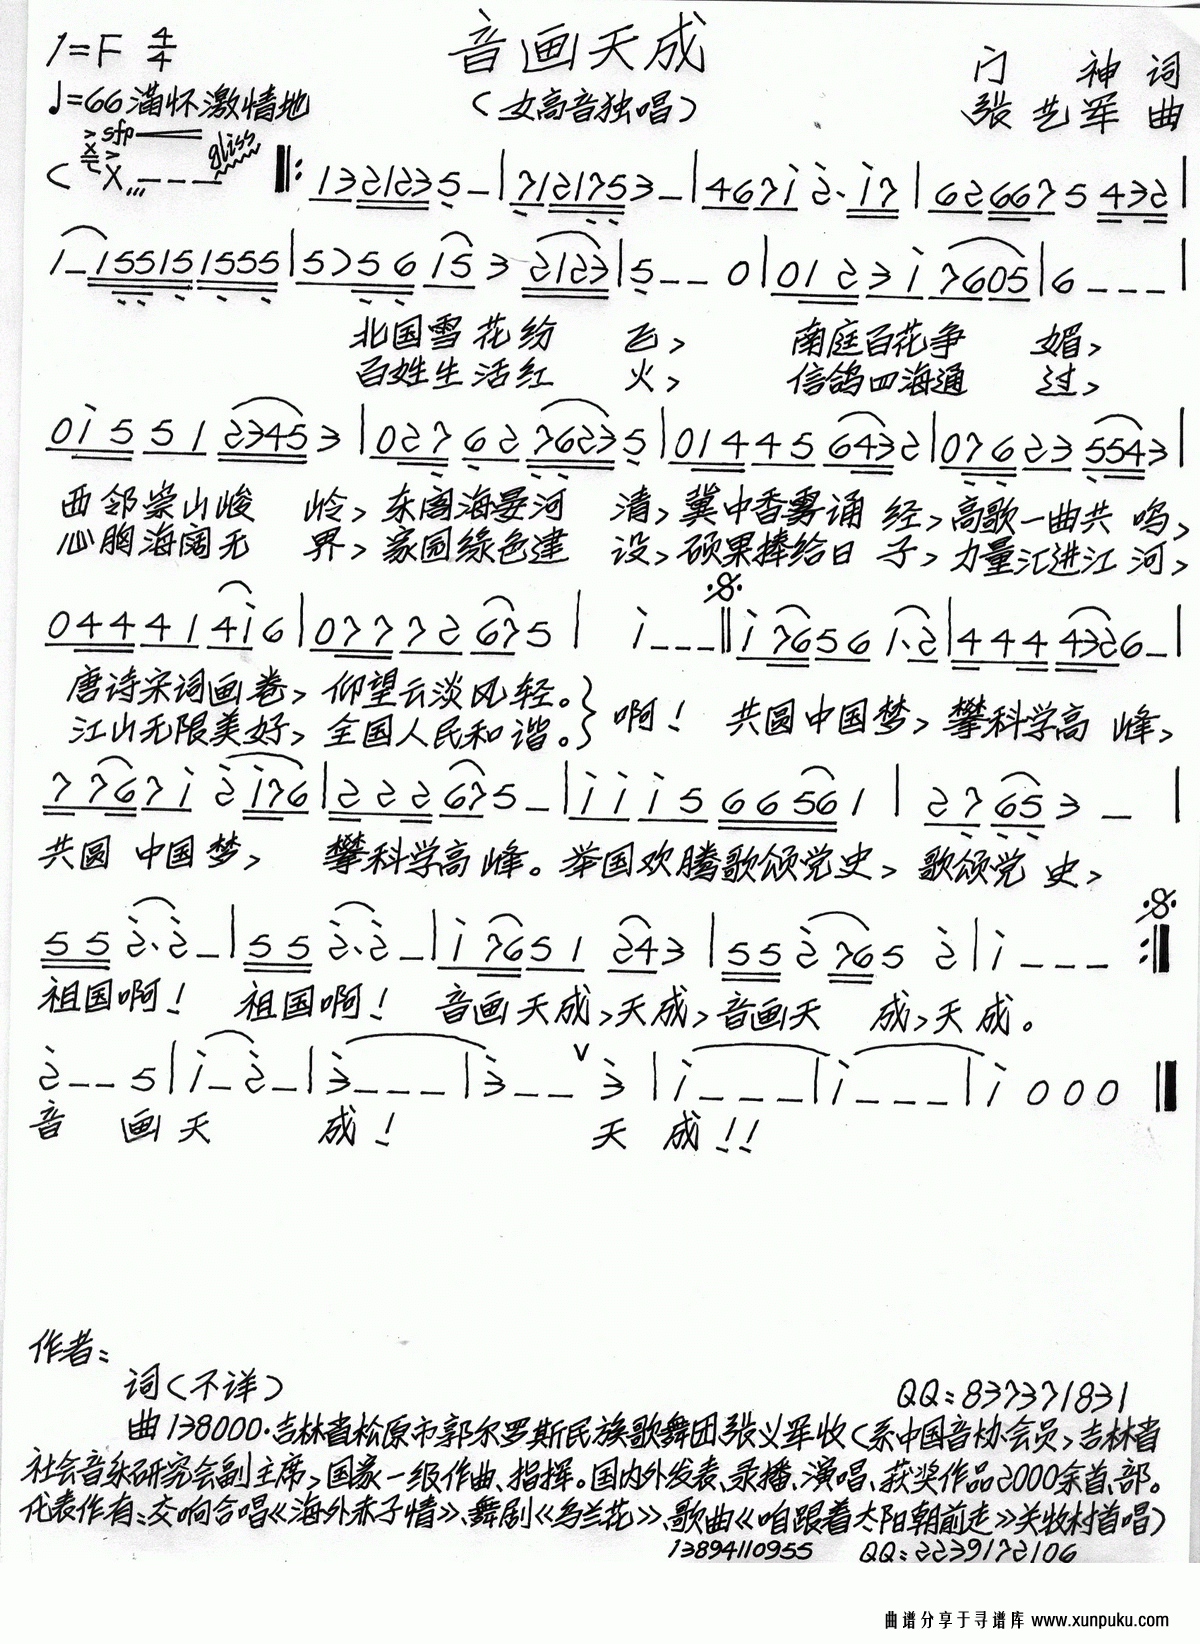 音画天成
1=F 4/4
门 神 词
♩=66 满怀激情地
(女高音独唱)
张艺军 曲
sfp gliss
1321235-|7121753-|467i 2·i7|626675 432|
1-155151555|5756 153 2123|5--0|0123i7605|6---|
北国雪花纷 飞, 南庭百花争 媚,
百姓生活红 火, 信鸽四海通 过,
0i5 51 23453|027 62 76235|014 45 6432|076 23 5543|
西邻崇山峻 岭, 东阁海晏河 清, 冀中香雾诵 经, 高歌一曲共 鸣,
心胸海阔无 界, 家园绿色建 设, 硕果捧给日 子, 力量汇进江 河,
044 41 4i6|077 72 675| i---‖i 7656 1·2|444 4326-|
唐诗宋词画 卷, 仰望云淡风轻。
江山无限美好, 全国人民和谐。
啊! 共圆中国梦, 攀科学高 峰,
7 767i 2i76|222 675-|iii5 66561| 2765 3 - |
共圆 中国梦, 攀科学高峰。举国欢腾歌颂党史, 歌颂党 史,
55 2·2-|55 2·2-|i 7651 243|55 2 765 2|i---:‖
祖国啊! 祖国啊! 音画天成,天成,音画天 成,天成。
2--5|i-2-|3---|3-- 3|i---|i---|i 000‖
音 画天 成! 天 成!!
作者:
词(不详)
QQ:837371831
曲138000·吉林省松原市郭尔罗斯民族歌舞团张义军收(系中国音协会员,吉林省
社会音乐研究会副主席,国家一级作曲、指挥。国内外发表、录播、演唱、获奖作品2000余首、部。
代表作有:交响合唱《海外赤子情》、舞剧《乌兰花》、歌曲《咱跟着太阳朝前走》关牧村首唱)
13894110955 QQ:2239172106
曲谱分享于寻谱库 www.xunpuku.com